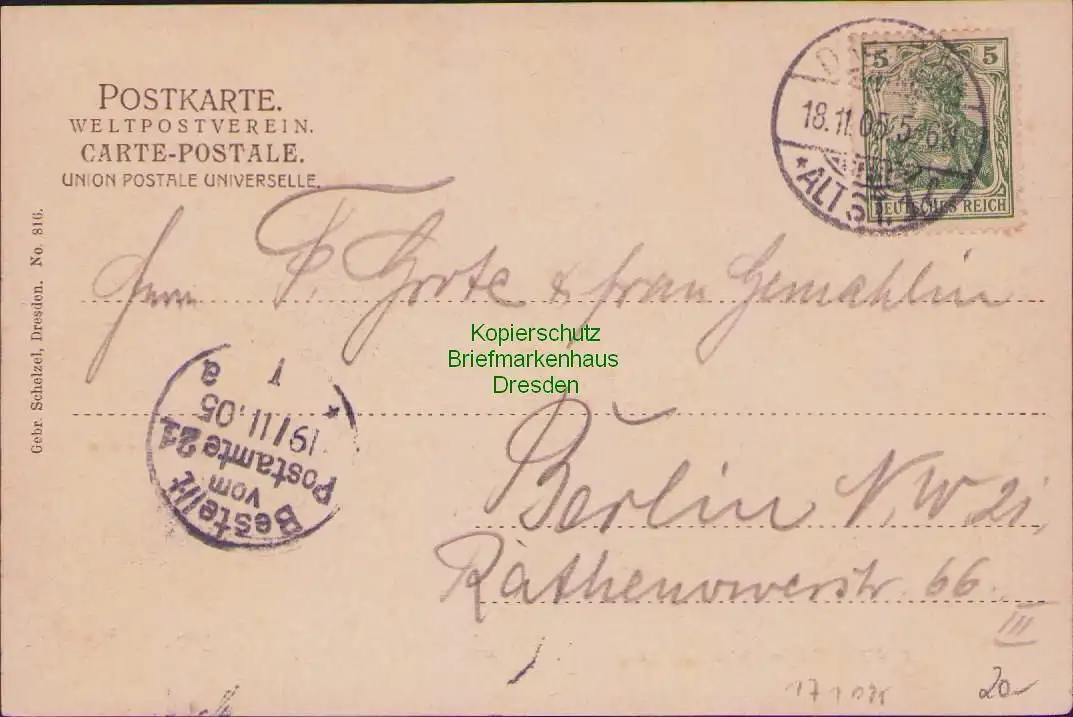 POSTKARTE.
WELTPOSTVEREIN.
CARTE-POSTALE.
UNION POSTALE UNIVERSELLE.
5 5
DEUTSCHES REICH
18.11.05 5-6N
*ALTST.
Gebr. Schelzel, Dresden. No. 816.
Herrn F. Grote & frau Gemahlin
Kopierschutz
Briefmarkenhaus
Dresden
Bestellt
vom
Postamte 21
19/11.05
1 a
*
Berlin N.W. 21,
Rathenowerstr. 66
III
20-